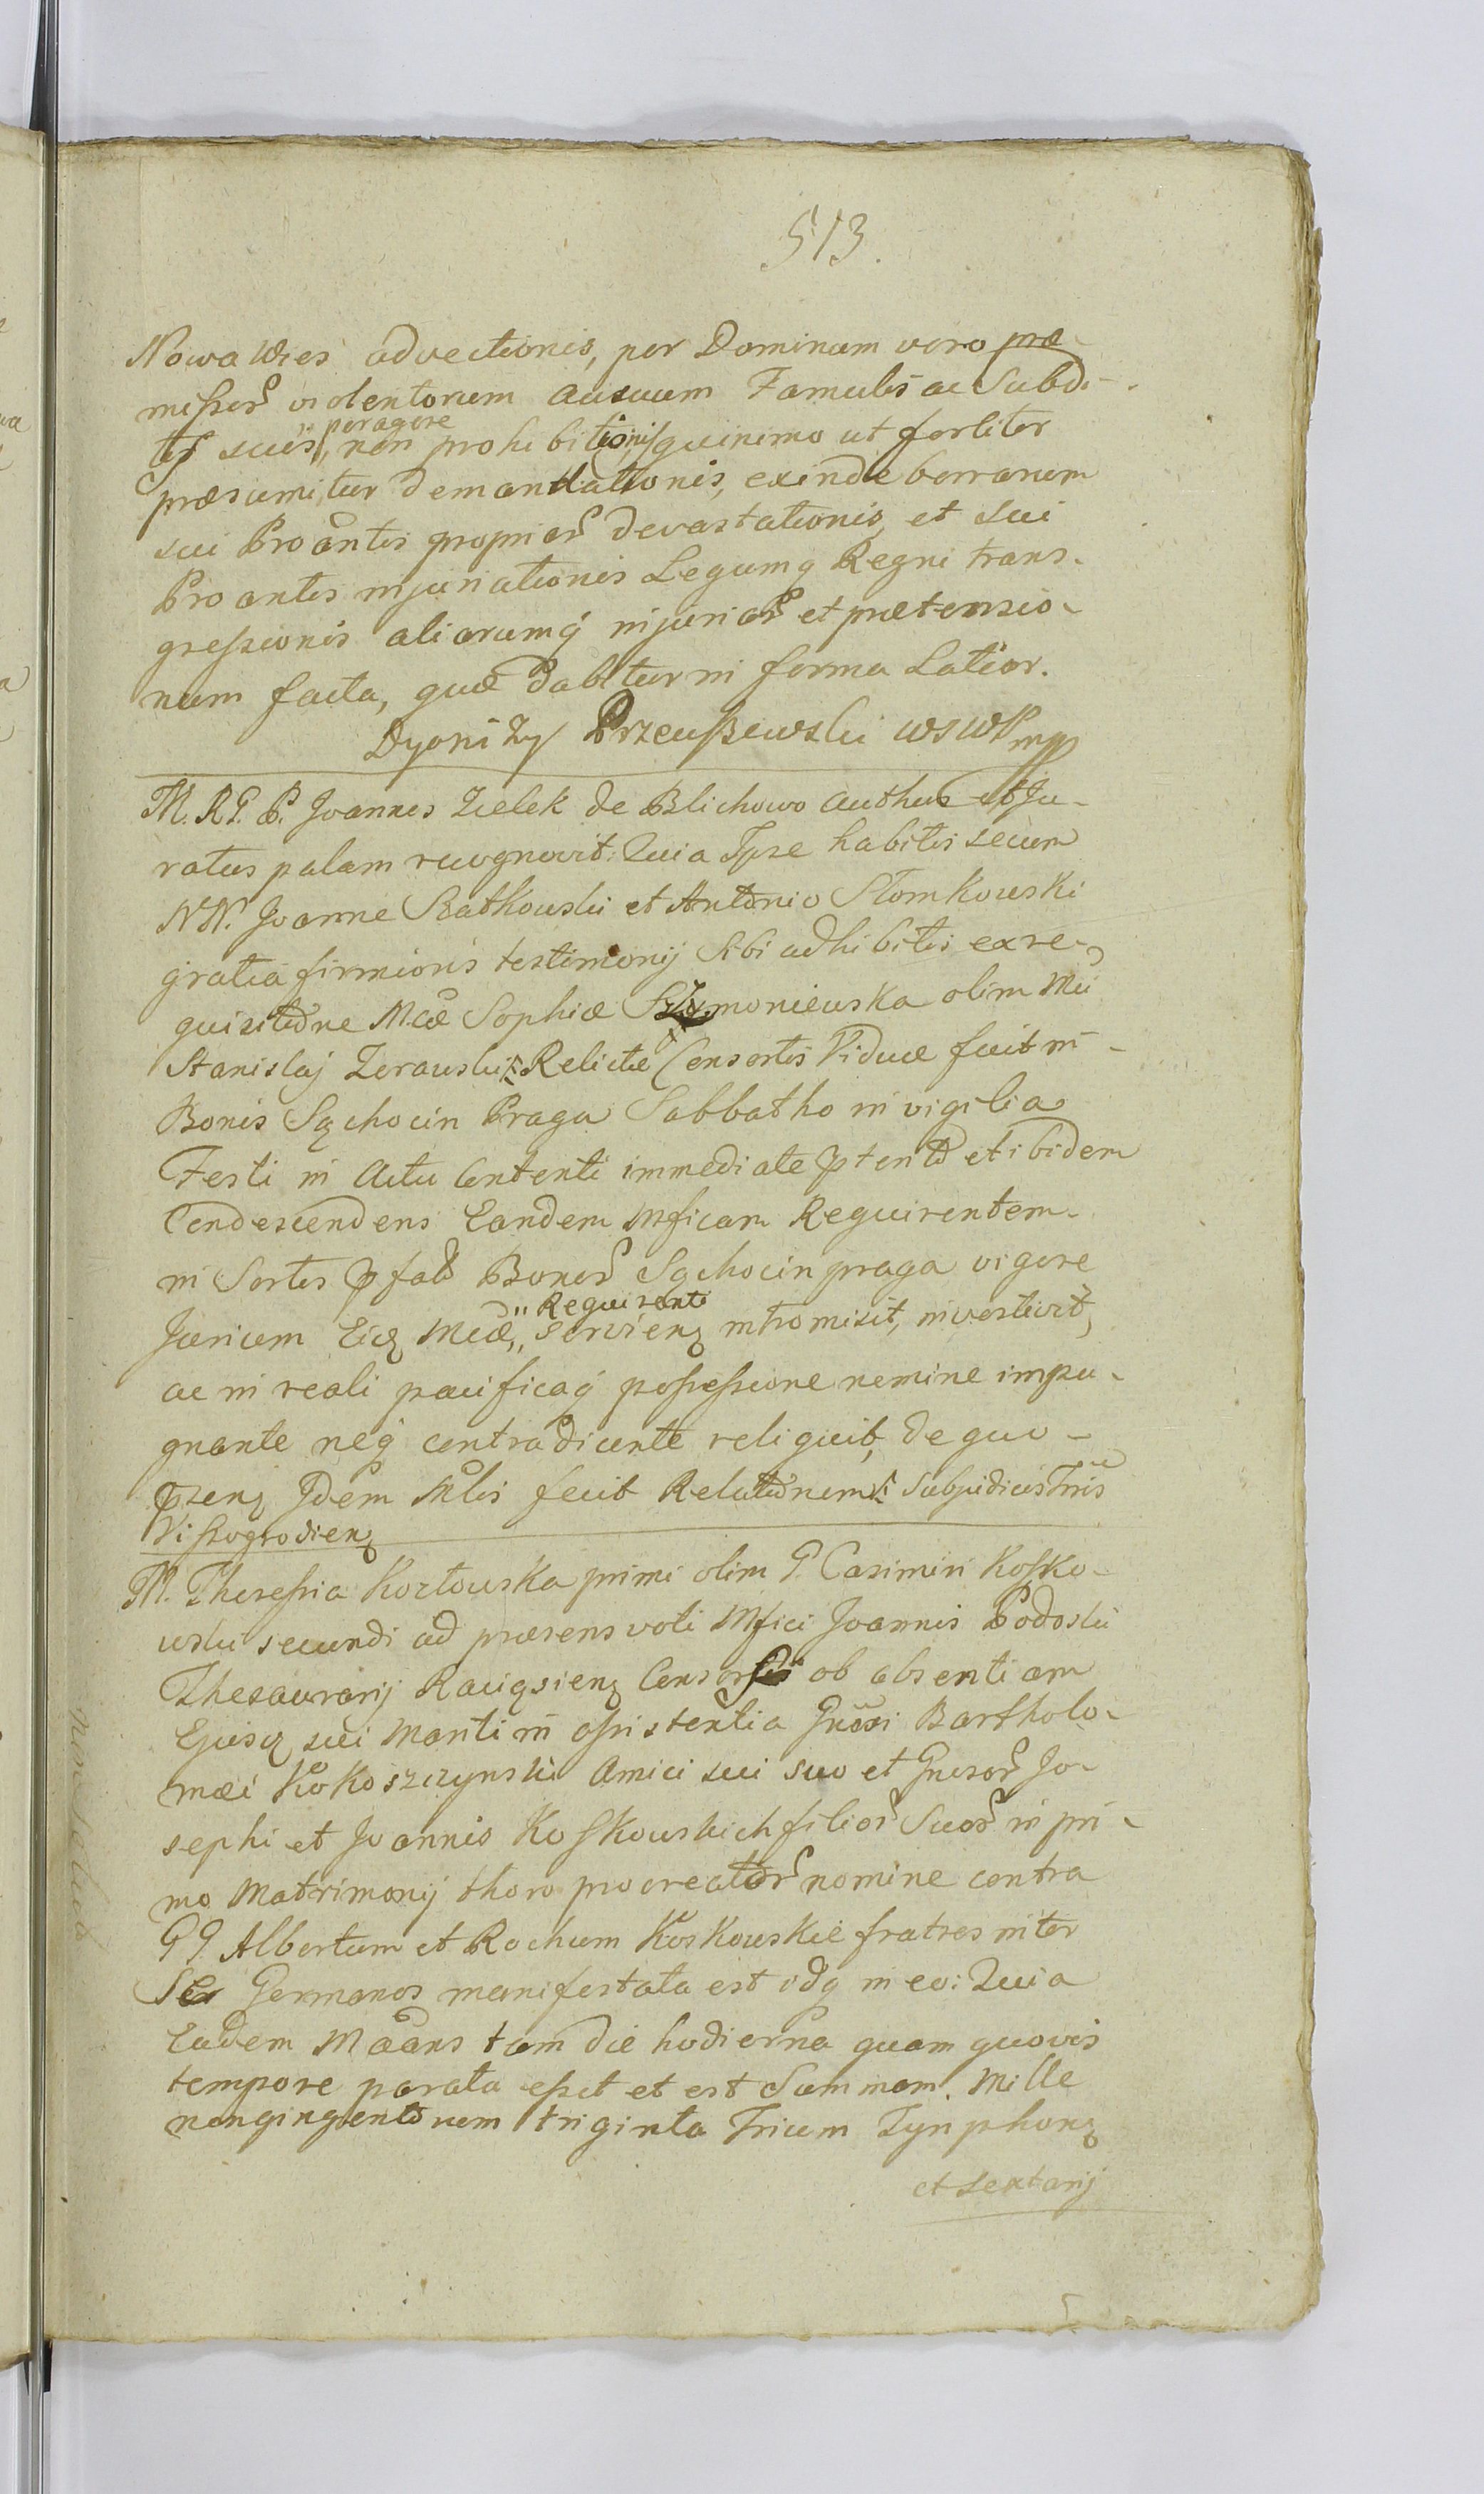 513.
Nowa Wies advectionis, per Dominum vero præ-
missor violentorum ausuum Famulis ac Subdi-
tis suis, peragere non prohibitionis quinimo ut fortiter
præsumitur demandationis, exinde borrarum
sui Proantis proprior devastationis, et sui
Proantis injuriationis Legumq Regni trans-
gressionis aliorumq injurior et prætensio-
num facta, quæ dabitur in forma Latior.
Dyonizy Przeuszewski WSWP mpp
M. R. P. P. Joannes Zielek de Blichowo Authus et Ju-
ratus palam recognovit: Quia Ipse habitis secum
NN. Joanne Ratkowski et Antonio Słomkowski
gratia firmioris testimonij Sibi adhibitis ex re-
quisitione Mcæ Sophiæ Szymoniewska olim Mci
Stanislaj Zerawski Relictæ Consortis Viduæ fuit in
Bonis Sąchocin Praga Sabbatho in vigilia
Festi in Actu Contenti immediate ptento et ibidem
Condescendens Eandem Mficam Requirentem
in Sortes pfat Bonor Sąchocin praga vigore
Jurium Eid Mcæ, Requirenti servien intromisit, investivit,
ac in reali pacificaq possessione nemine impu-
gnante neq contradicente reliquit, de quo
psens Idem Mlis fecit Relationem Subjudicis Tris
Wissogrodien
M. Theressia Kozłowska primi olim G. Casimiri Kossko-
wski secundi ad præsens voti Mfici Joannis Podoski
Thesaurarij Raciąsien Consortis ob absentiam
Ejusd sui Mariti in assistentia Gnosi Bartholo-
mæi Kokoszczynski Amici sui suo et Gnosor Jo-
sephi et Joannis Koskowskich filior Suor in pri-
mo Matrimonij thoro procreator nomine contra
GG Albertum et Rochum Koskowskie fratres inter
Se Germanos manifestata est idq in eo: Quia
Eadem Maans tam die hodierna quam quovis
tempore parata esset et est Summam Mille
nongingentorum triginta Trium Tynphon
et sextarij